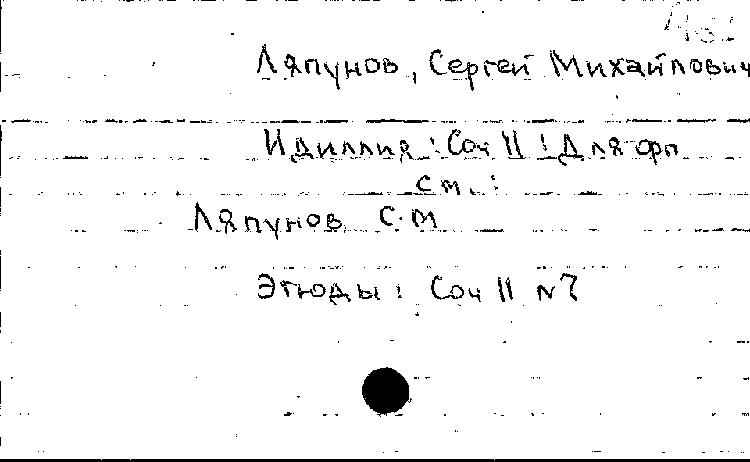 Ляпунов, Сергей Михайлович
Идиллия: Соч 11: Для фп
см.:
Ляпунов С.М
Этюды: Соч 11 N7